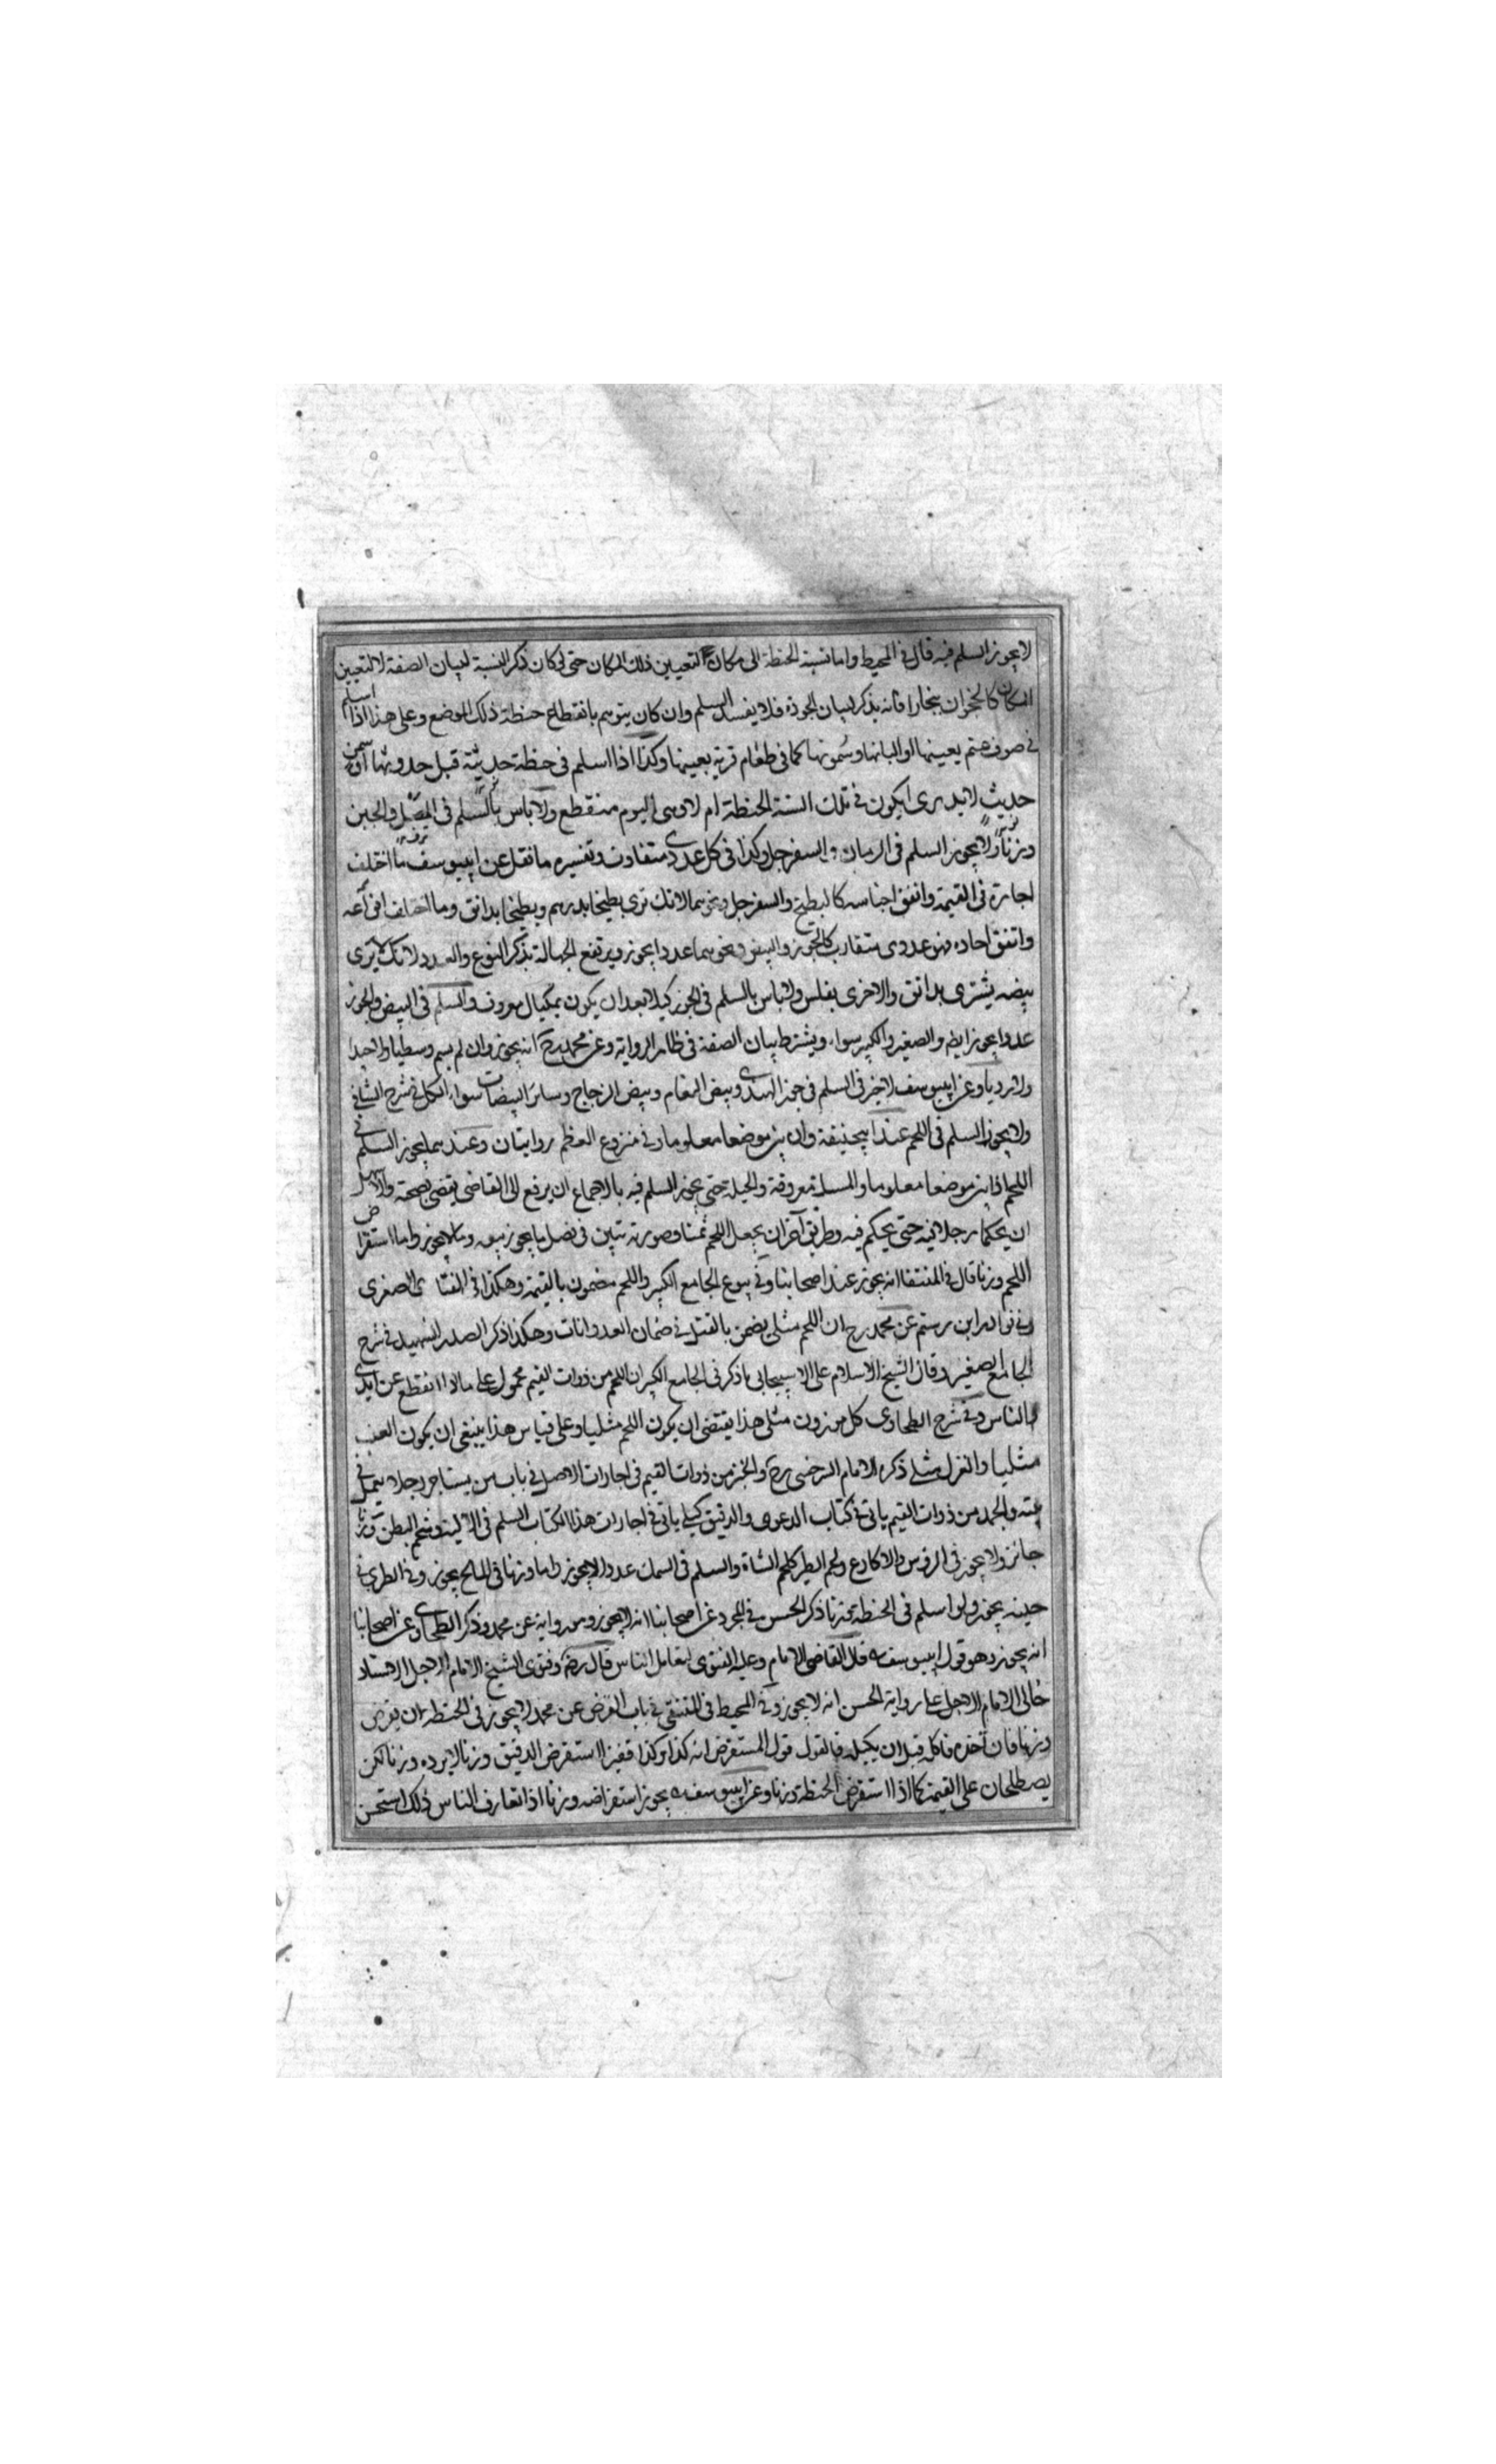 لا يجوز السلم فيه قال في المحيط واما نسبة الحنطة الى مكان لتعيين ذلك المكان حتى لو كان ذكر النسبة لبيان الصفة لا لتعيين
المكان كالخخران ببخارا فانه يذكر لبيان الجودة فلا يفسد السلم وان كان يتوهم بانقطاع حنطة ذلك الموضع وعلى هذا اذا اسلم
في صوف غنم بعينها او البانها وسمونها كما في طعام قرية بعينها وكذا اذا اسلم في حنطة حديثة قبل حدوثها او سمن
حديث لا يدرى ايكون في تلك السنة الحنطة ام لا وهى اليوم منقطع ولا باس بالسلم في المصل والجبن
وزنا ولا يجوز السلم في الرمان والسفرجل وكذا في كل عددى متفاوت وتفسيره ما نقل عن ابيوسف ما اختلف
احاده في القيمة واتفق اجناسه كالبطيخ والسفرجل ونحوهما لانك ترى بطيخا بدرهم وبطيخا بدانق وما اختلف انواعه
واتفق احاده فهو عددى متقارب كالجوز والبيض ونحوهما عددا يجوز ويرتفع الجهالة بذكر النوع والعدد لانك لا ترى
بيضه يشترى بدانق والاخرى بفلس ولا باس بالسلم في الجوز كيلا بعد ان يكون بمكيال معروف والسلم في البيض والجوز
عددا يجوز ايضا والصغير والكبير سواء ويشترط بيان الصفة في ظاهر الرواية وعن محمد رح انه يجوز وان لم يسم وسطا ولا جيدا
ولا رديا وعن ابيوسف لا خير في السلم في جوز الهندى وبيض النعام وبيض الدجاج وسائر البيضات سواء الكل في شرح الشافي
ولا يجوز السلم في اللحم عند ابيحنيفة وان بين موضعا معلوما وفي منزوع العظم روايتان وعندهما يجوز السلم في
اللحم اذا بين موضعا معلوما والمسئلة معروفة والحيلة حتى يجوز السلم فيه بالاجماع ان يرفع الى القاضى يقضى بصحته والاسهل
ان يحكما رجلا فيه حتى يحكم فيه وطريق آخر ان يجعل اللحم ثمنا وصورته تتبين في فصل ما يجوز بيعه وما لا يجوز واما استقراض
اللحم وزنا قال في المنتقا انه يجوز عند اصحابنا وفي بيوع الجامع الكبير واللحم مضمون بالقيمة وهكذا في الفتاوى الصغرى
وفي نوادر ابن رستم عن محمد رح ان اللحم مثلي يضمن بالمثل في ضمان العدوانات وهكذا ذكر الصدر الشهيد في شرح
الجامع الصغير وقال الشيخ الاسلام على الاسبيجابى ما ذكر في الجامع الكبير ان اللحم من ذوات القيم محمول على ما اذا انقطع عن ايدى
الناس وفي شرح الطحاوى كل موزون مثلى هذا يقتضى ان يكون اللحم مثليا وعلى قياس هذا ينبغى ان يكون العنب
مثليا والغزل مثلى ذكره الامام السرخسى رح والخبز من ذوات القيم في اجارات الاصل في باب من يستاجر رجلا يعمل في
بيته والجمد من ذوات القيم ياتى في كتاب الدعوى والدقيق كيلى ياتى في اجارات هذا الكتاب السلم في الالية وشحم البطن وزنا
جائز ولا يجوز في الرؤس والاكارع ولحم الطير كلحم الشاة والسلم في السمك عددا لا يجوز اما وزنا في المالح يجوز وفي الطرى في
حينه يجوز ولو اسلم في الحنطة وزنا ذكر الحسن في المجرد عن اصحابنا انه لا يجوز وهو رواية عن محمد وذكر الطحاوى عن اصحابنا
انه يجوز وهو قول ابيوسف قال القاضى الامام وعليه الفتوى لتعامل الناس قال رضه وفتوى الشيخ الامام الاجل الاستاد
خالى الامام الاجل على رواية الحسن انه لا يجوز وفي المحيط في المنتقى في باب القرض عن محمد لا يجوز في الحنطة ان يقرض
وزنا فان اخذه فاكله قبل ان يكيله فالقول قول المستقرض انه كذا وكذا قفيزا استقرض الدقيق وزنا لا يرده وزنا لكن
يصطلحان على القيمة كما اذا استقرض الحنطة وزنا وعن ابيوسف يجوز استقراضه وزنا اذا تعارف الناس ذلك استحسن